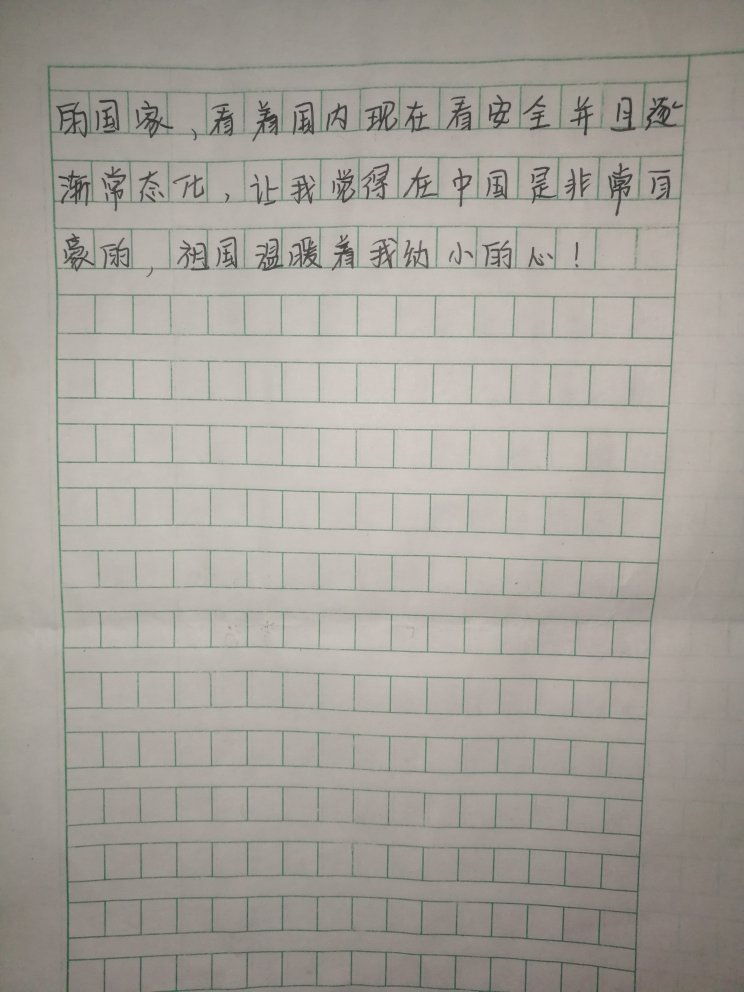 的国家，看着国内现在看安全并且逐
渐常态化，让我觉得在中国是非常自
豪的，祖国温暖着我幼小的心！